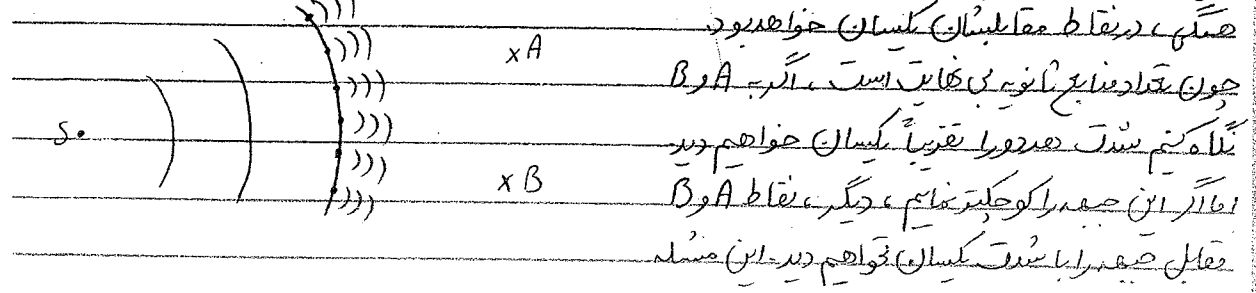 همگی، در نقاط مقابلشان یکسان خواهد بود.
چون تعداد منابع ثانویه بی نهایت است، اگر به A و B
نگاه کنیم شدت هر دو را تقریباً یکسان خواهیم دید.
اما اگر این جبهه را کوچکتر نماییم، دیگر، نقاط A و B
مقابل جبهه را با شدت یکسان نخواهیم دید. این مسئله
S
x A
x B